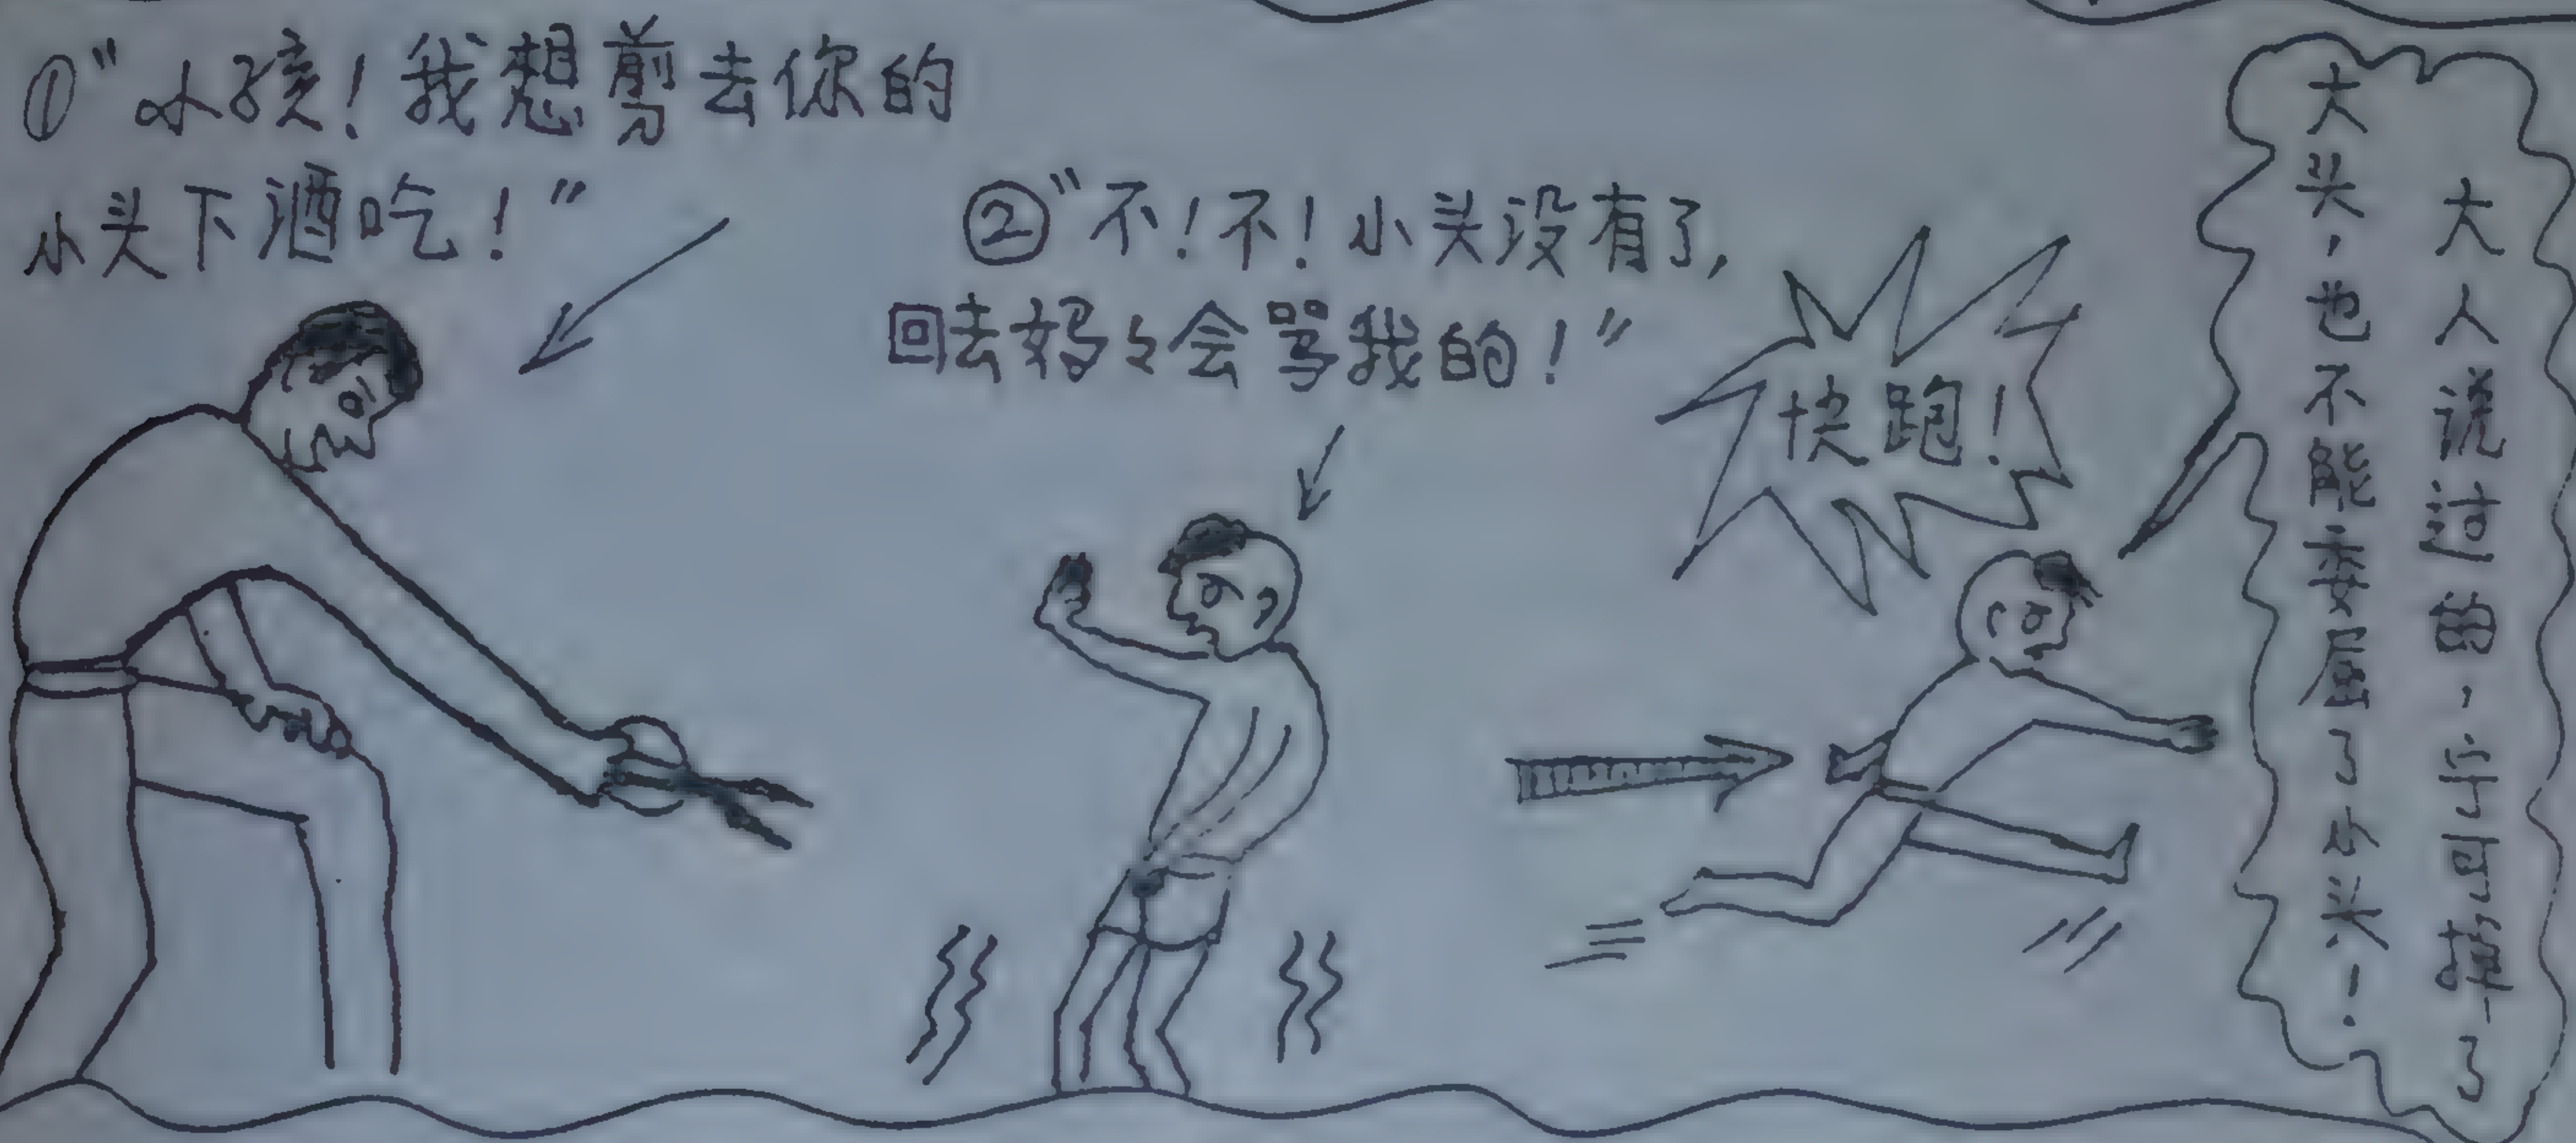 ①“小孩！我想剪去你的
小头下酒吃！”
②“不！不！小头没有了，
回去妈々会骂我的！”
快跑！
大人说过的，宁可掉了
大头，也不能委屈了小头！